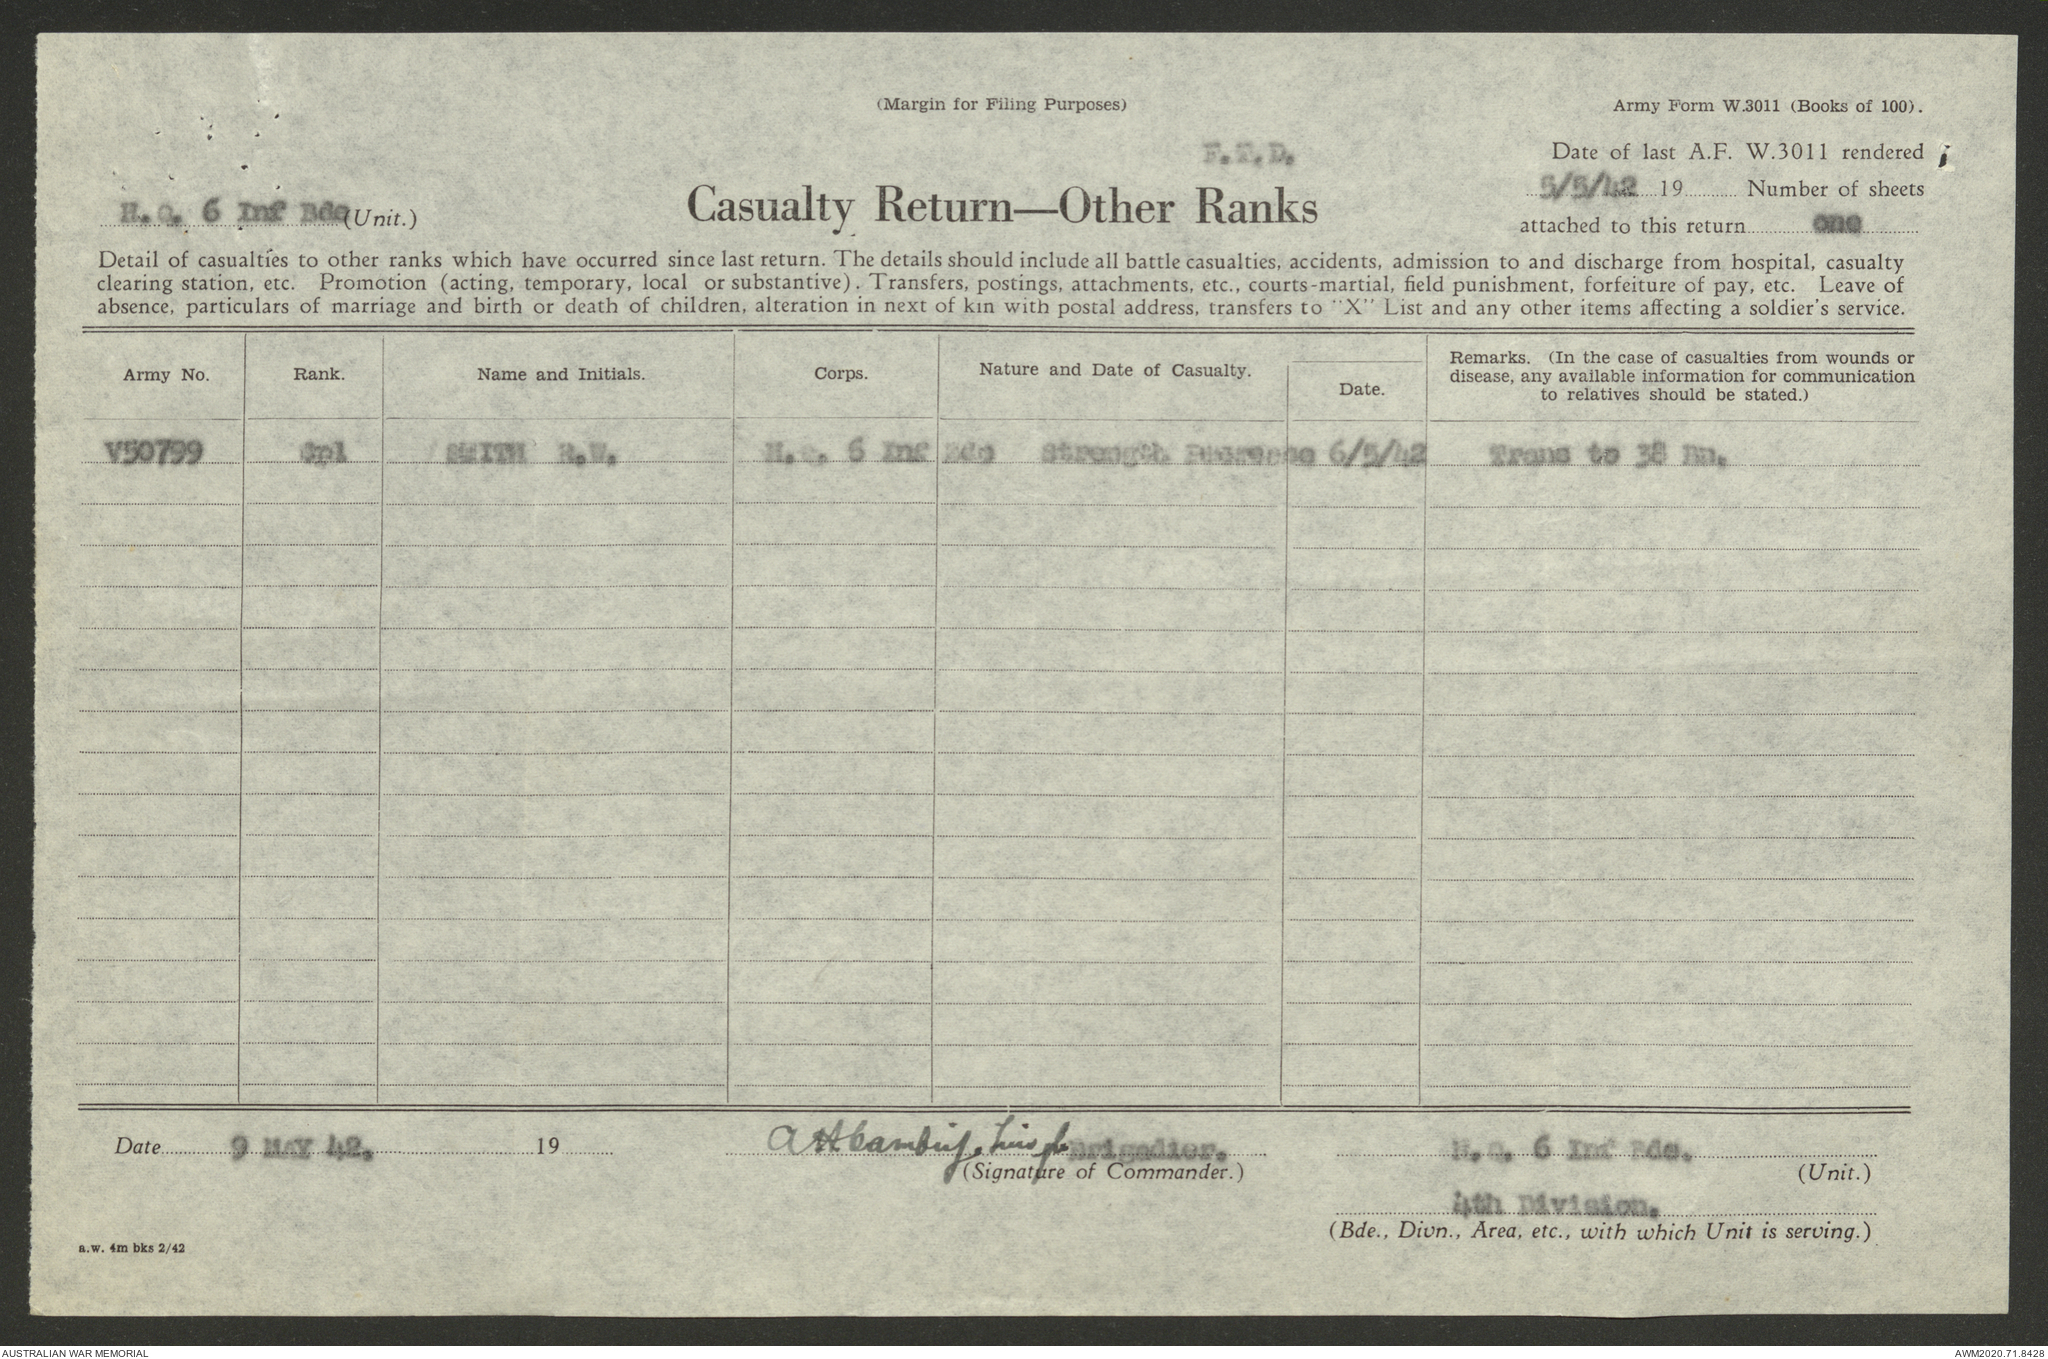 (Margin for Filing Purposes)
Army Form W.3011 (Books of 100).
F.T.D.
Date of last A.F. W.3011 rendered
5/5/42 19 Number of sheets
attached to this return one
H.Q. 6 Inf Bde (Unit.)
Casualty Return—Other Ranks
Detail of casualties to other ranks which have occurred since last return. The details should include all battle casualties, accidents, admission to and discharge from hospital, casualty
clearing station, etc. Promotion (acting, temporary, local or substantive). Transfers, postings, attachments, etc., courts-martial, field punishment, forfeiture of pay, etc. Leave of
absence, particulars of marriage and birth or death of children, alteration in next of kin with postal address, transfers to "X" List and any other items affecting a soldier's service.
Army No. Rank. Name and Initials. Corps. Nature and Date of Casualty. Date. Remarks. (In the case of casualties from wounds or
disease, any available information for communication
to relatives should be stated.)
V50799 Cpl SMITH R.W. H.Q. 6 Inf Bde Strength Decrease 6/5/42 Trans to 38 Bn.
Date 9 MAY 42. 19
Brigadier.
(Signature of Commander.)
H.Q. 6 Inf Bde.
(Unit.)
4th Division.
(Bde., Divn., Area, etc., with which Unit is serving.)
a.w. 4m bks 2/42
AUSTRALIAN WAR MEMORIAL
AWM2020.71.8428